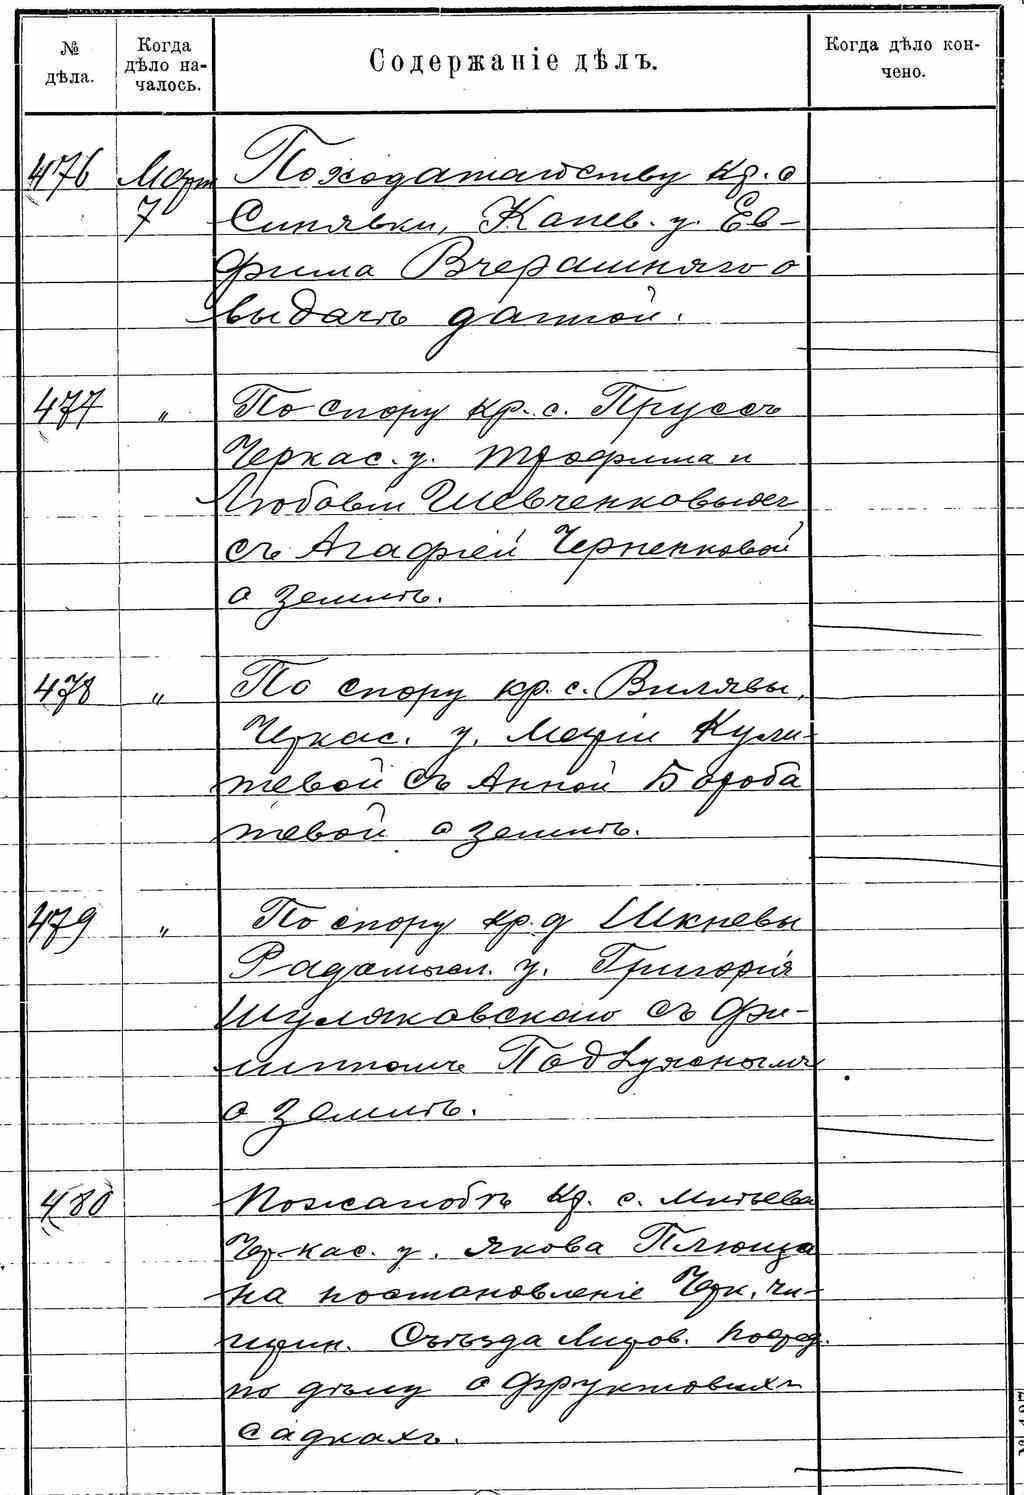 № дѣла.
Когда дѣло на-
чалось.
Содержаніе дѣлъ.
Когда дѣло кон-
чено.
476 Март По ходатайству кр. с
7 Синявки, Канев. у. Ев-
фима Вчерашняго о
выдачѣ данной.
477 " По спору кр. с. Пруссъ
Черкас. у. Трофима и
Любови Шевченковыхъ
съ Агафіей Черненковой
о землѣ.
478 " По спору кр. с. Вилявы,
Черкас. у. Маріи Кули-
шевой съ Анной Бороба
шевой о землѣ.
479 " По спору кр. д Шкневы
Радомысл. у. Григорія
Шуляковскаго съ Фи-
липпомъ Подлужнымъ
о землѣ.
480 По жалобѣ кр. с. Млѣева
Черкас. у. Якова Плюща
на постановленіе Черк. Чи-
гирин. Съѣзда Миров. Посред.
по дѣлу о фруктовыхъ
садкахъ.